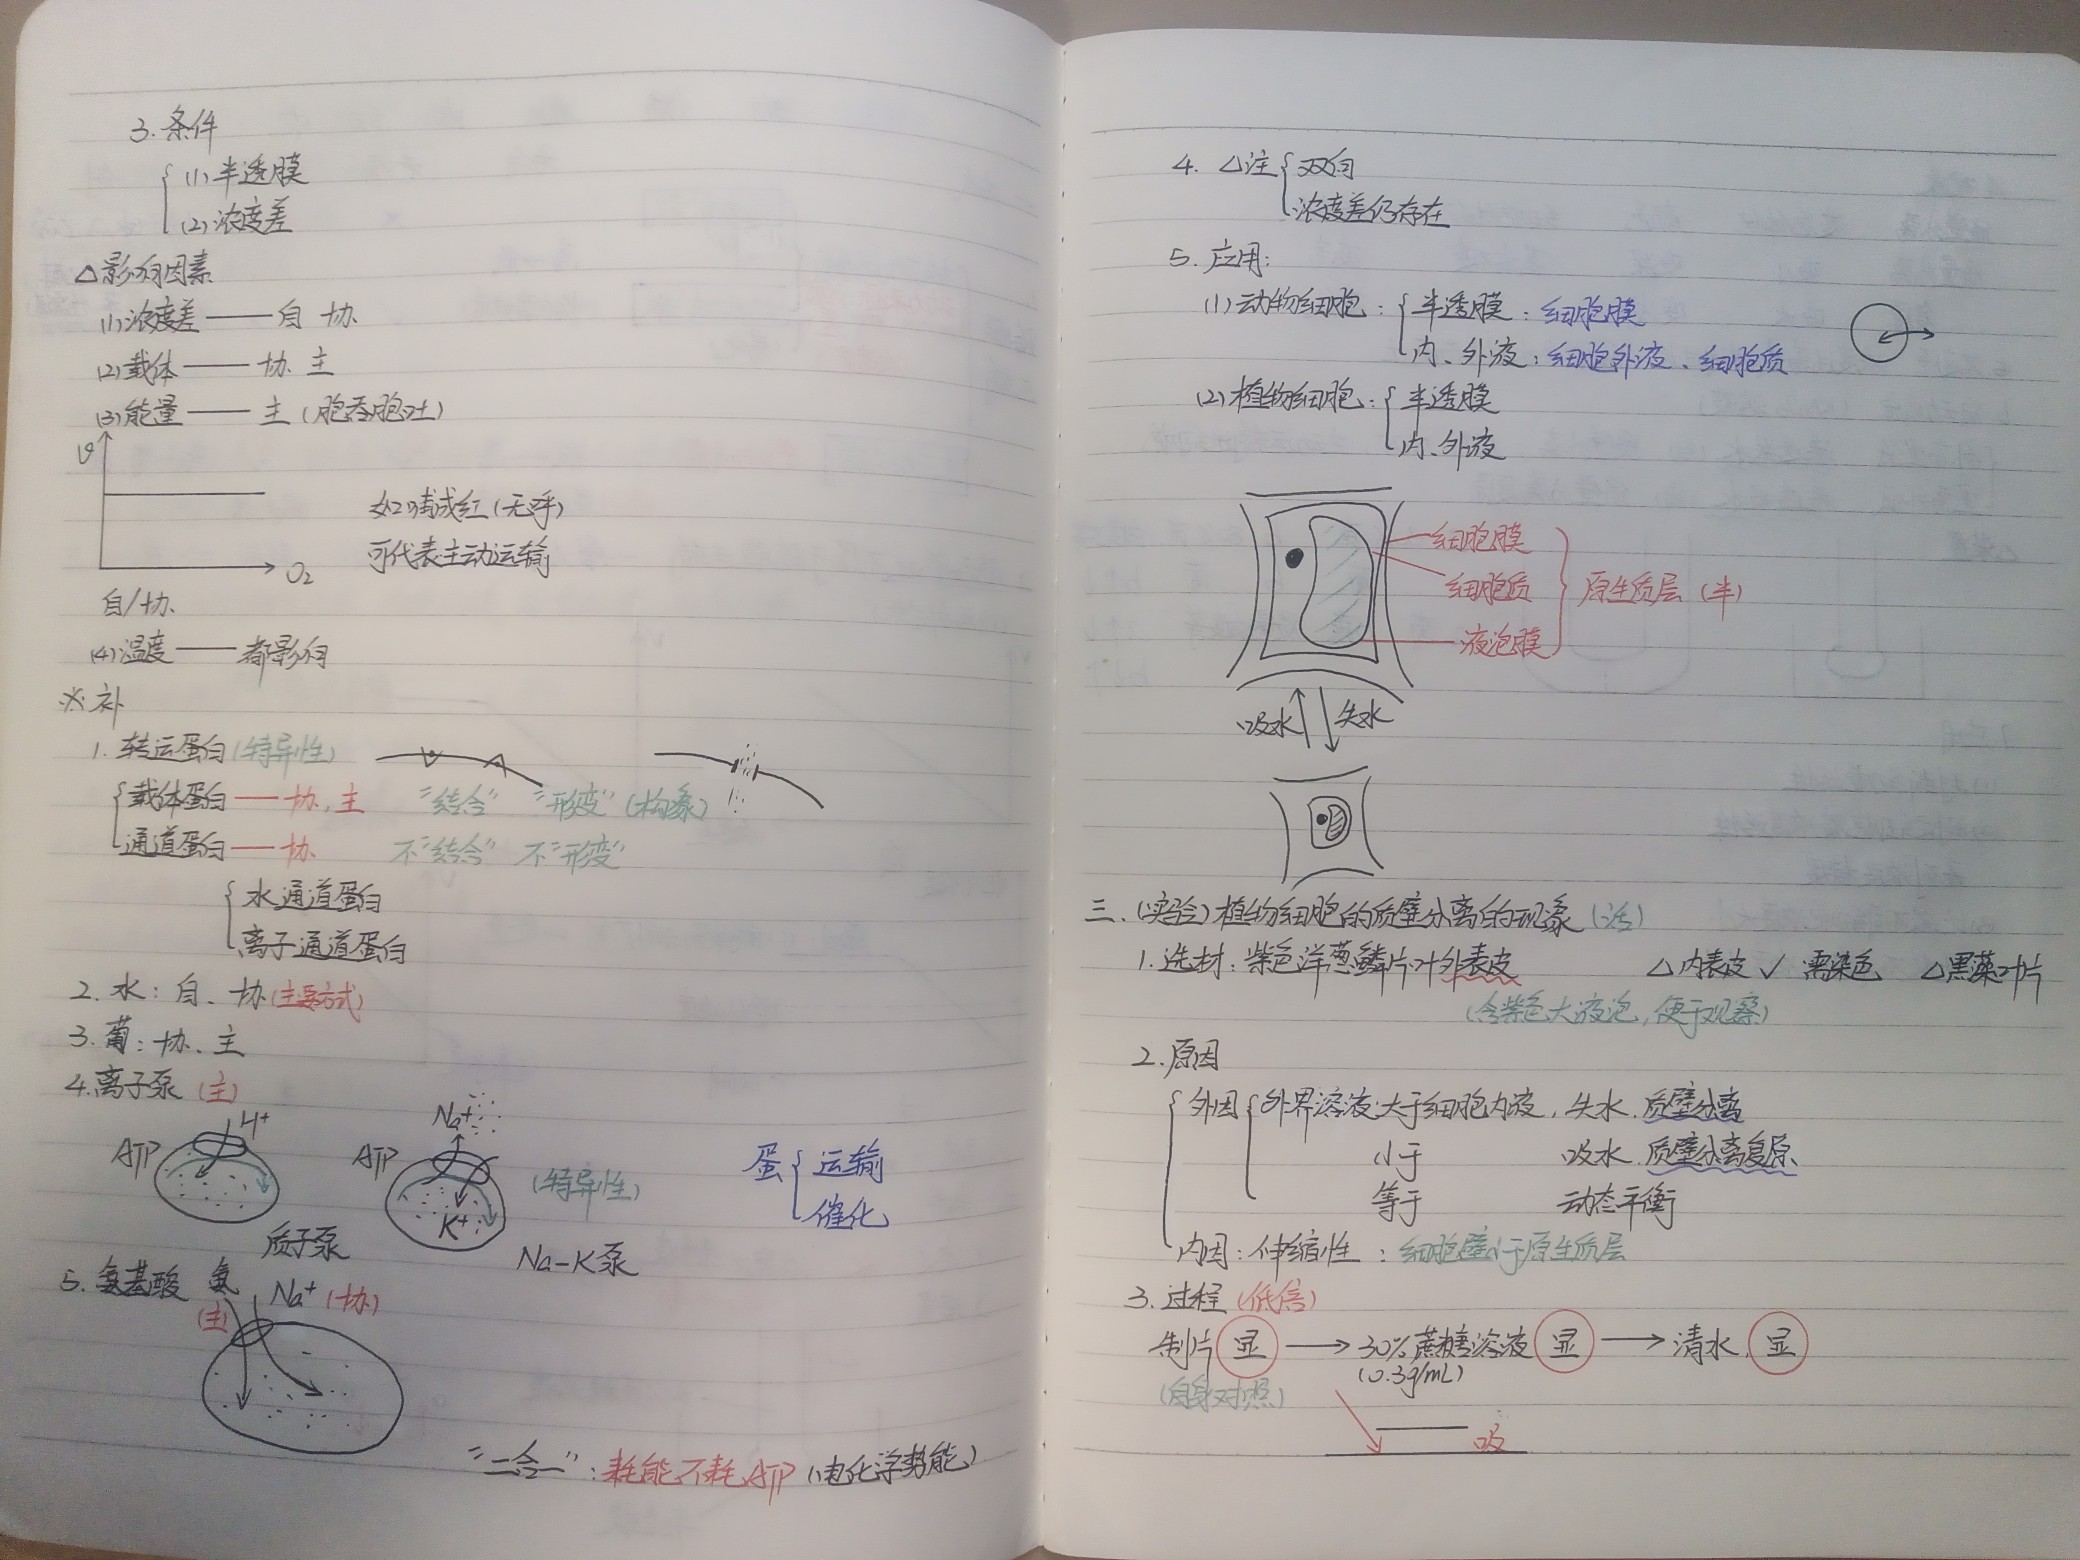 3. 条件
(1) 半透膜
(2) 浓度差
△影响因素
(1) 浓度差 —— 自 协
(2) 载体 —— 协 主
(3) 能量 —— 主 (胞吞胞吐)
v
如哺成红(无呼)
可代表主动运输
O₂
自/协
(4) 温度 —— 都影响
※补
1. 转运蛋白(特异性)
载体蛋白 —— 协,主 "结合" "形变" (构象)
通道蛋白 —— 协 不"结合" 不"形变"
水通道蛋白
离子通道蛋白
2. 水:自、协(主要方式)
3. 葡:协、主
4. 离子泵(主)
H⁺
ATP
质子泵
Na⁺
ATP
K⁺
(特异性)
Na-K泵
蛋 运输
催化
5. 氨基酸 氨 Na⁺ (协)
(主)
"二合一":耗能不耗ATP(电化学势能)
4. △注 双向
浓度差仍存在
5. 应用:
(1) 动物细胞:半透膜:细胞膜
内、外液:细胞外液、细胞质
(2) 植物细胞:半透膜
内、外液
细胞膜
细胞质
液泡膜
原生质层(半)
吸水 失水
三.(实验)植物细胞的质壁分离的现象(活)
1. 选材:紫色洋葱鳞片叶外表皮 △内表皮✓ 需染色 △黑藻叶片
(含紫色大液泡,便于观察)
2. 原因
外因 外界溶液大于细胞内液,失水.质壁分离
小于 吸水.质壁分离复原
等于 动态平衡
内因:伸缩性:细胞壁小于原生质层
3. 过程(低倍)
制片 显 → 30%蔗糖溶液 显 → 清水. 显
(自身对照) (0.3g/mL)
吸